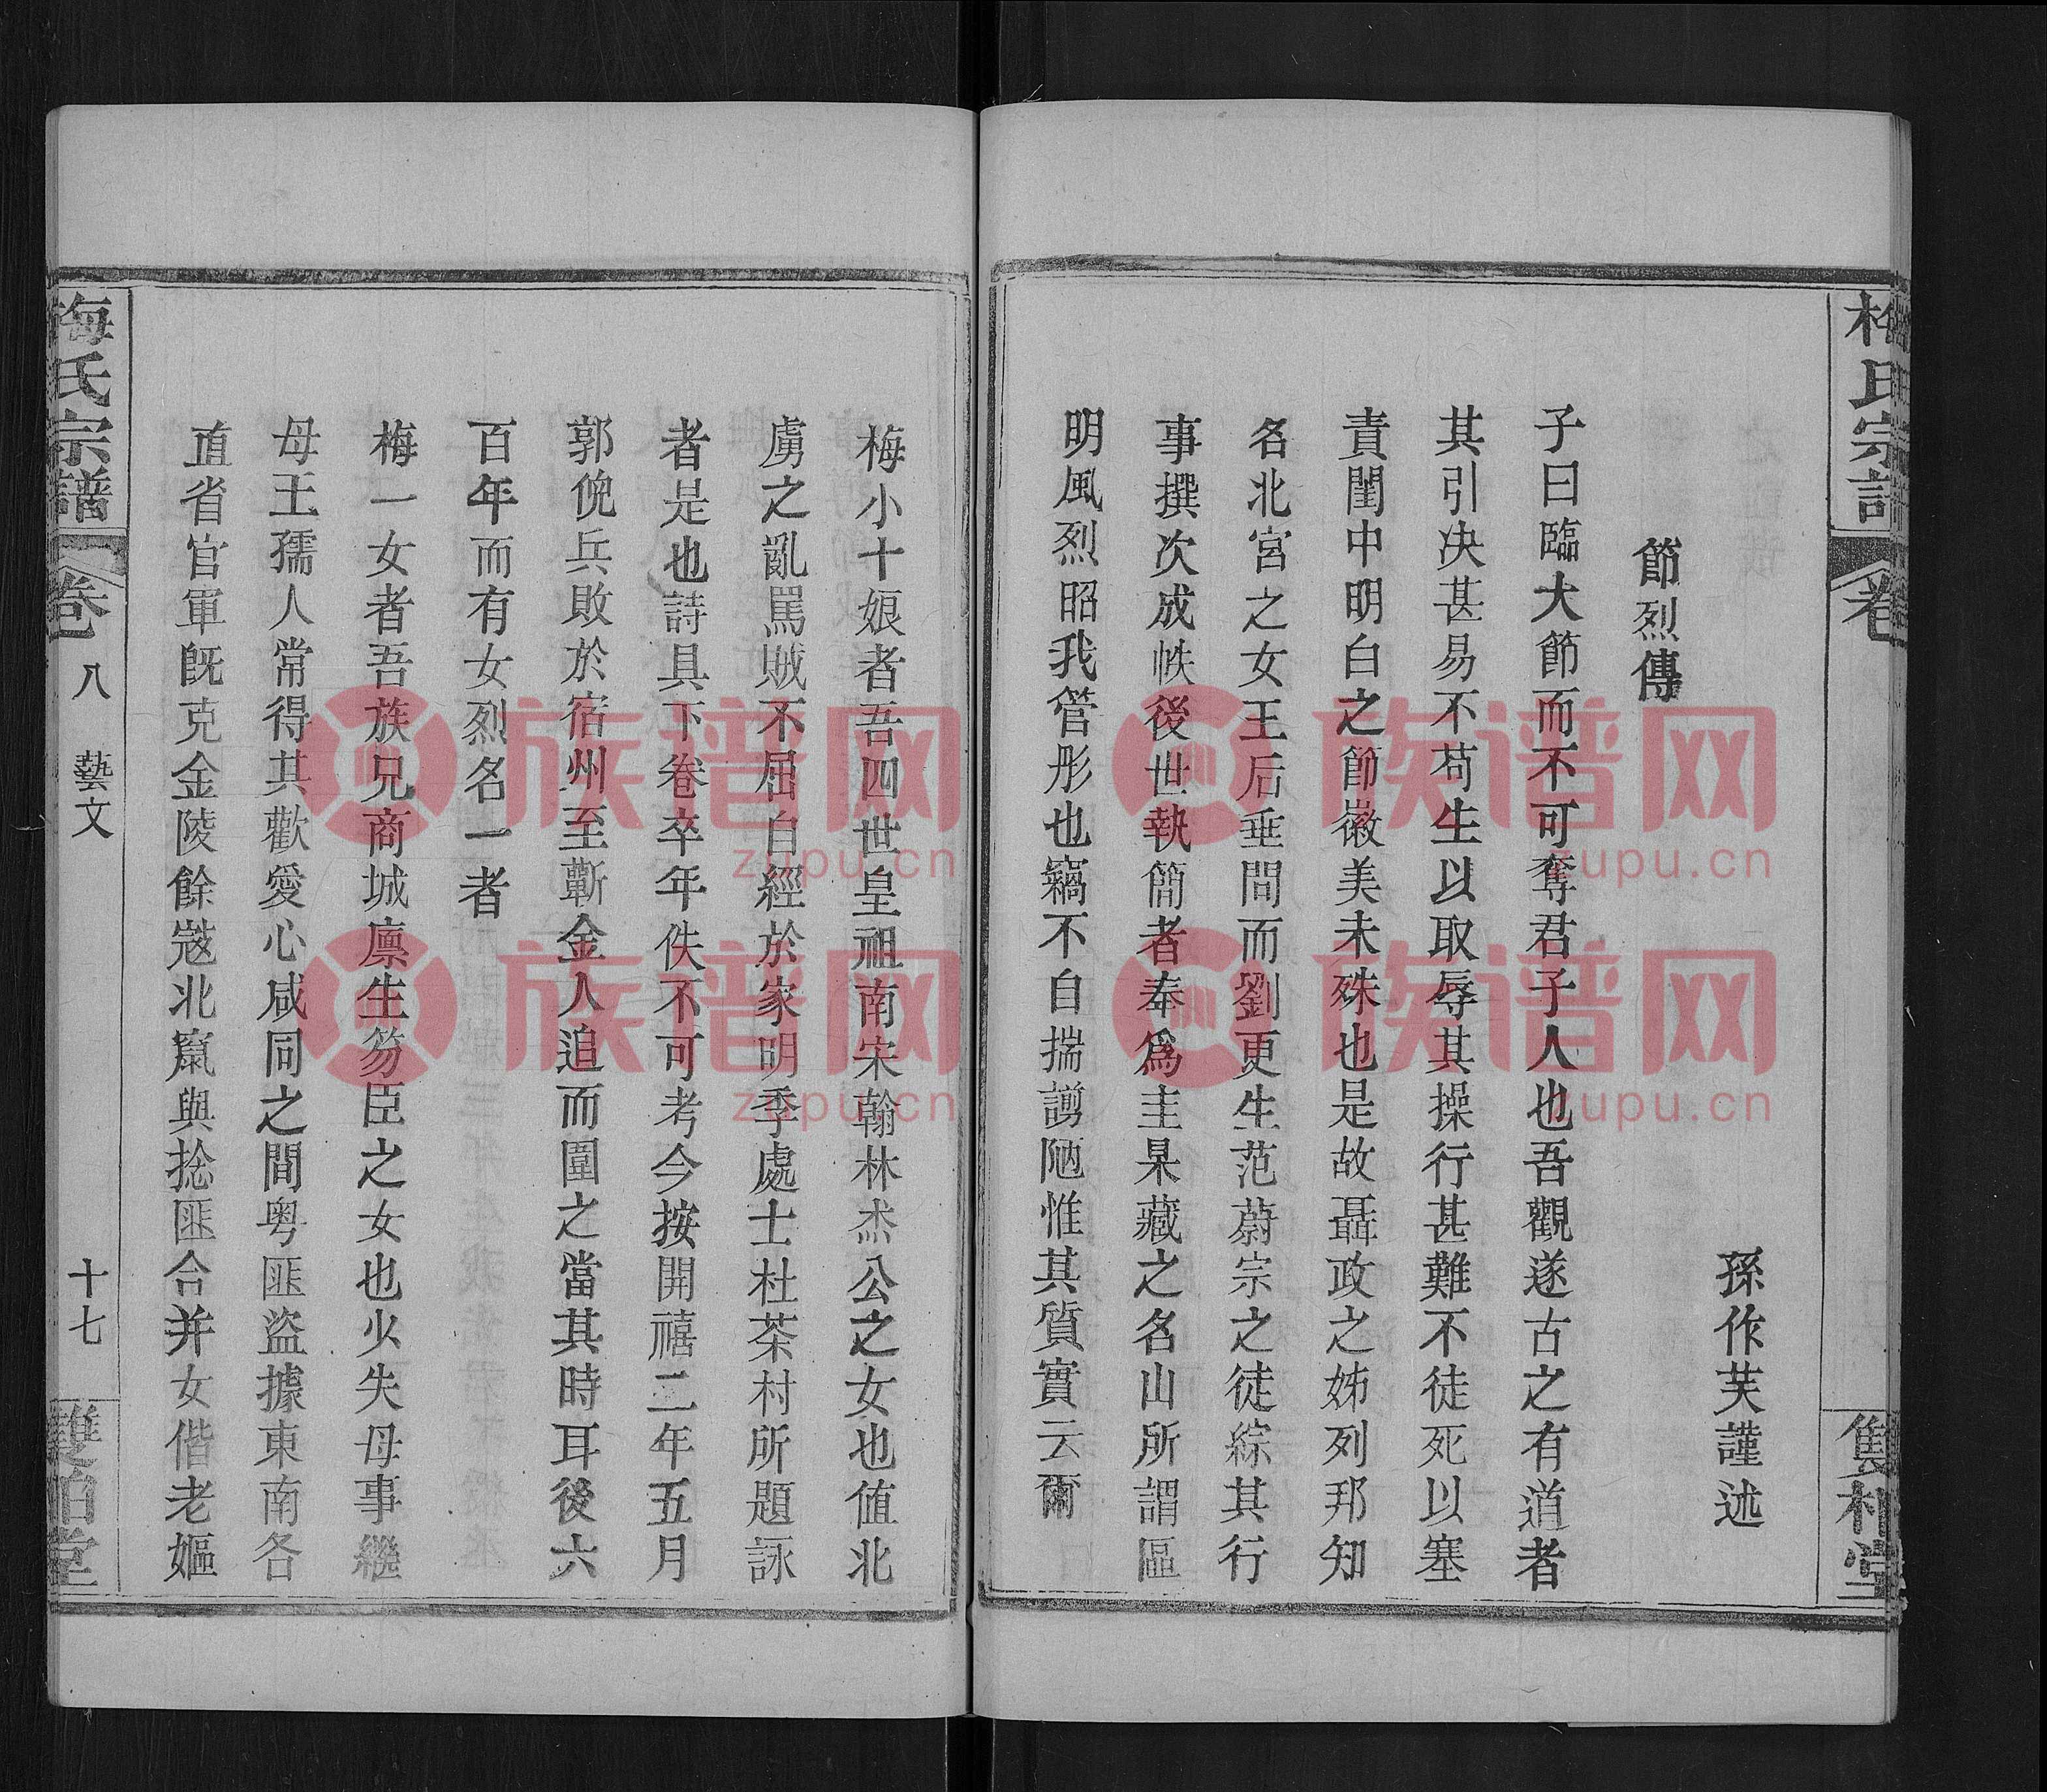 梅氏宗譜
卷
雙柏堂
孫作芙謹述
節烈傳
子曰臨大節而不可奪君子人也吾觀遂古之有道者
其引决甚易不苟生以取辱其操行甚難不徒死以塞
責閨中明白之節徽美未殊也是故聶政之姊列邦知
名北宮之女王后垂問而劉更生范蔚宗之徒綜其行
事撰次成帙後世執簡者奉爲圭臬藏之名山所謂區
明風烈昭我管彤也竊不自揣謭陋惟其質實云爾
梅小十娘者吾四世皇祖南宋翰林杰公之女也值北
虜之亂罵賊不屈自經於家明季處士杜茶村所題詠
者是也詩具下卷卒年佚不可考今按開禧二年五月
郭倪兵敗於宿州至蘄金人追而圍之當其時耳後六
百年而有女烈名一者
梅一女者吾族兄商城廪生笏臣之女也火失母事繼
母王孺人常得其歡愛心咸同之間粤匪盜據東南各
直省官軍旣克金陵餘寇北竄與捻匪合并女偕老嫗
梅氏宗譜
卷
八
藝文
十七
雙柏堂
族谱网
zupu.cn
族谱网
zupu.cn
族谱网
zupu.cn
族谱网
zupu.cn